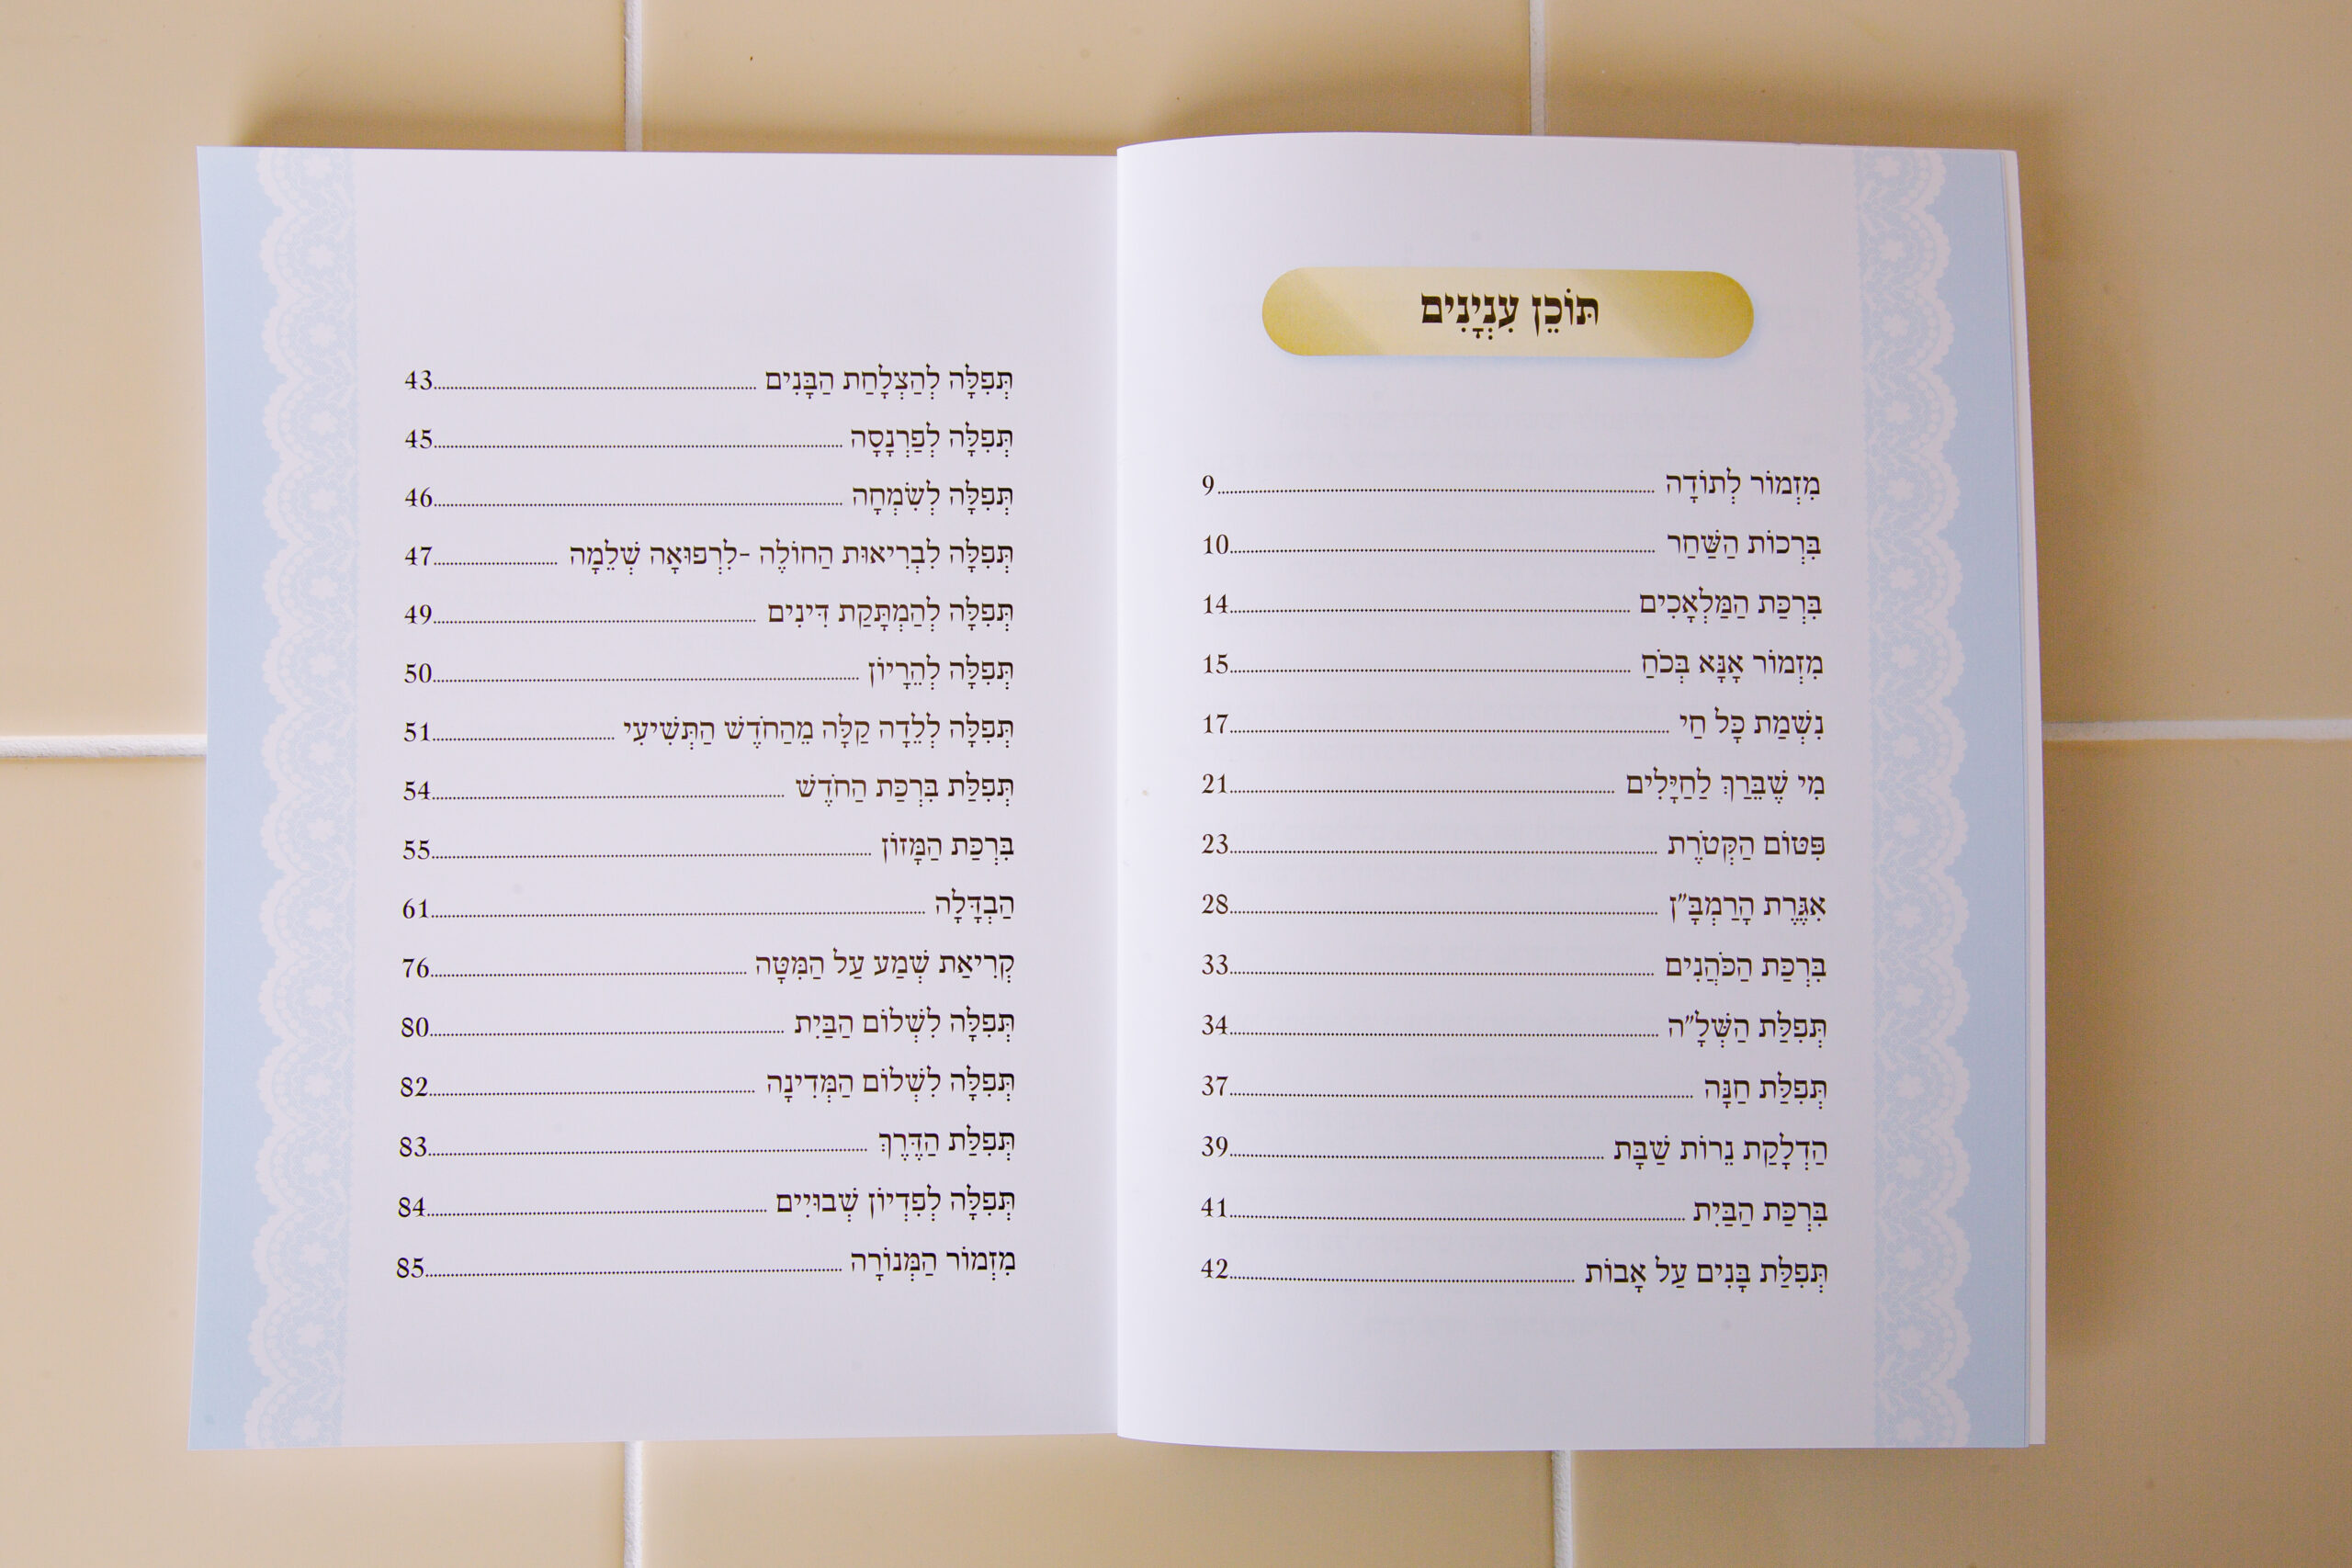 תּוֹכֵן עִנְיָנִים
מִזְמוֹר לְתוֹדָה 9
בִּרְכוֹת הַשַּׁחַר 10
בִּרְכַּת הַמַּלְאָכִים 14
מִזְמוֹר אָנָּא בְּכֹחַ 15
נִשְׁמַת כָּל חַי 17
מִי שֶׁבֵּרַךְ לַחַיָּלִים 21
פִּטּוֹם הַקְּטֹרֶת 23
אִגֶּרֶת הָרַמְבָּ״ן 28
בִּרְכַּת הַכֹּהֲנִים 33
תְּפִלַּת הַשְּׁלָ״ה 34
תְּפִלַּת חַנָּה 37
הַדְלָקַת נֵרוֹת שַׁבָּת 39
בִּרְכַּת הַבַּיִת 41
תְּפִלַּת בָּנִים עַל אָבוֹת 42
תְּפִלָּה לְהַצְלָחַת הַבָּנִים 43
תְּפִלָּה לְפַרְנָסָה 45
תְּפִלָּה לְשִׂמְחָה 46
תְּפִלָּה לִבְרִיאוּת הַחוֹלֶה -לִרְפוּאָה שְׁלֵמָה 47
תְּפִלָּה לְהַמְתָּקַת דִּינִים 49
תְּפִלָּה לְהֵרָיוֹן 50
תְּפִלָּה לְלֵדָה קַלָּה מֵהַחֹדֶשׁ הַתְּשִׁיעִי 51
תְּפִלַּת בִּרְכַּת הַחֹדֶשׁ 54
בִּרְכַּת הַמָּזוֹן 55
הַבְדָּלָה 61
קְרִיאַת שְׁמַע עַל הַמִּטָּה 76
תְּפִלָּה לִשְׁלוֹם הַבַּיִת 80
תְּפִלָּה לִשְׁלוֹם הַמְּדִינָה 82
תְּפִלַּת הַדֶּרֶךְ 83
תְּפִלָּה לְפִדְיוֹן שְׁבוּיִים 84
מִזְמוֹר הַמְּנוֹרָה 85